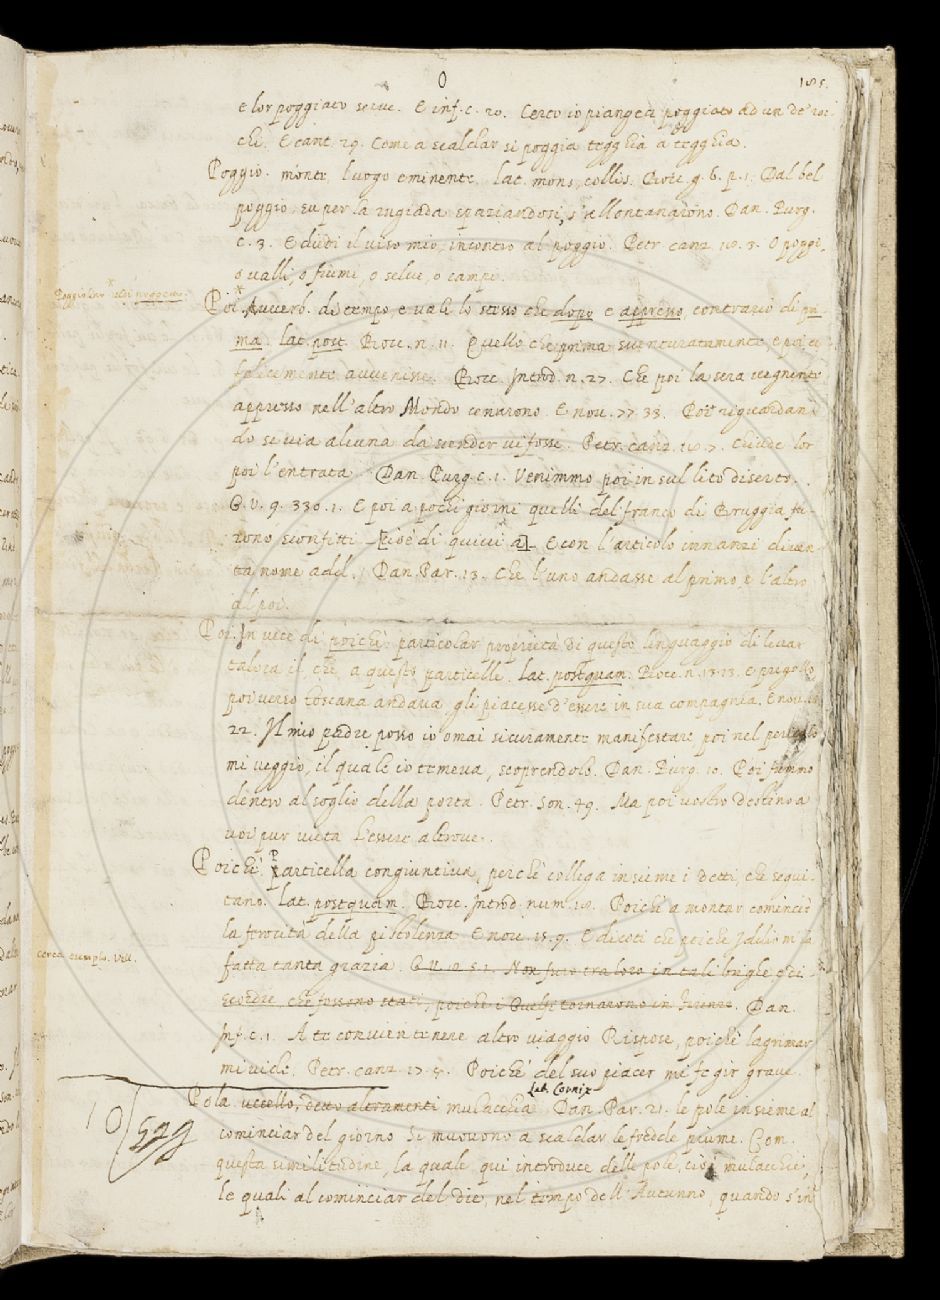 O
185.
e lor poggiato serve. E inf. c. 20. Certo io piangea poggiato ad un de' roc-
chi. E cant. 29. Come a scaldar si poggia tegghia a tegghia.
Poggio. monte, luogo eminente. Lat. mons, collis. Bocc. g. 6. p. 1. Dal bel
poggio su per la rugiada spaziandosi, s'allontanarono. Dan. Purg.
c. 3. E diedi il viso mio, incontro al poggio. Petr. canz. 3. O poggi,
o valli, o fiumi, o selve, o campi.
Poi. Avverb. di tempo, e vale lo stesso che dopo e appresso, contrario di pri-
ma. Lat. post. Bocc. n. 11. Quello che prima sventuratamente e poi
felicemente avvenisse. Bocc. Introd. n. 27. Che poi la sera vegnente
appresso nell'altro Mondo cenarono. E nov. 77. 33. Poi riguardan-
do se via alcuna da scender vi fosse. Petr. canz. 7. Chiude lor
poi l'entrata. Dan. Purg. c. 1. Venimmo poi in sul lito diserto.
G. V. 9. 330. 1. E poi a pochi giorni quelli del franco di Bruggia fu-
rono sconfitti [cioè di quivi a]. E con l'articolo innanzi diven-
ta nome add. Dan. Par. 13. Che l'uno andasse al primo, e l'altro
al poi.
Poi. In vece di poichè particolar proprietà di questo linguaggio di levar
talora il che, a queste particelle. Lat. postquam. Bocc. n. 13. 13. e pregollo
poi verso toscana andava, gli piacesse d'essere in sua compagnia. E nov.
22. Il mio padre posso io omai sicuramente manifestare poi nel pericolo
mi veggio, il quale io temeva, scoprendolo. Dan. Purg. 10. Poi fummo
dentro al soglio della porta. Petr. Son. 49. Ma poi vostro destino a
voi pur vieta l'essere altrove.
Poichè. Particella congiuntiva, perchè collega insieme i detti, che segui-
tano. Lat. postquam. Bocc. Introd. num. 10. Poichè a montar cominciò
la ferocità della pistolenza. E nov. 15. 9. E dicoti che poiche Iddio m'ha
cerca esemplo. Vill.
fatta tanta grazia. G. V. Non furo tra loro in tali brighe
che fossono stati, poiche i Guelfi tornarono in Firenze. Dan.
Inf. c. 1. A te convien tenere altro viaggio Rispose, poichè lagrimar
mi vide. Petr. canz. 17. Poichè del suo piacer mi fe gir grave.
Lat. Cornix
Pola uccello, detto altramenti mulacchia. Dan. Par. 21. le pole insieme al
cominciar del giorno Si muovono a scaldar le fredde piume. Com.
questa similitudine, la quale qui introduce delle pole, cioè mulacchie,
le quali al cominciar del die, nel tempo dell'Autunno, quando s'in